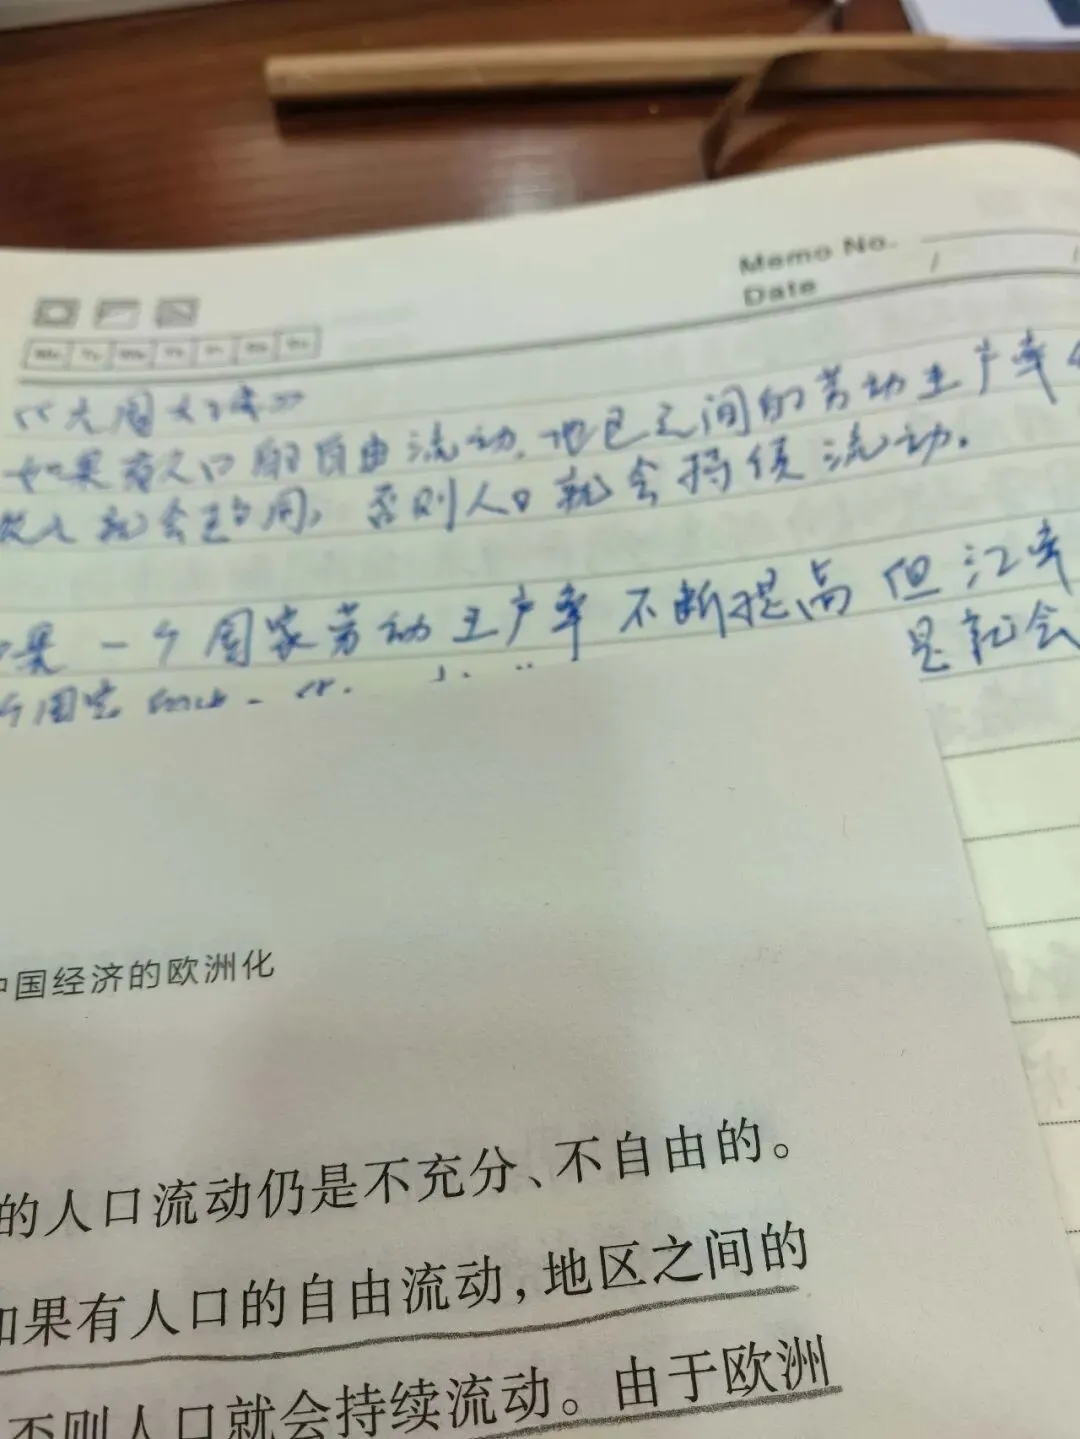 Memo No.
Date / /
《大国大城》
如果有人口的自由流动,地区之间的劳动生产率
收入就会趋同,否则人口就会持续流动.
果一个国家劳动生产率不断提高但汇率
个国家 是就会
中国经济的欧洲化
的人口流动仍是不充分、不自由的。
如果有人口的自由流动,地区之间的
否则人口就会持续流动。由于欧洲